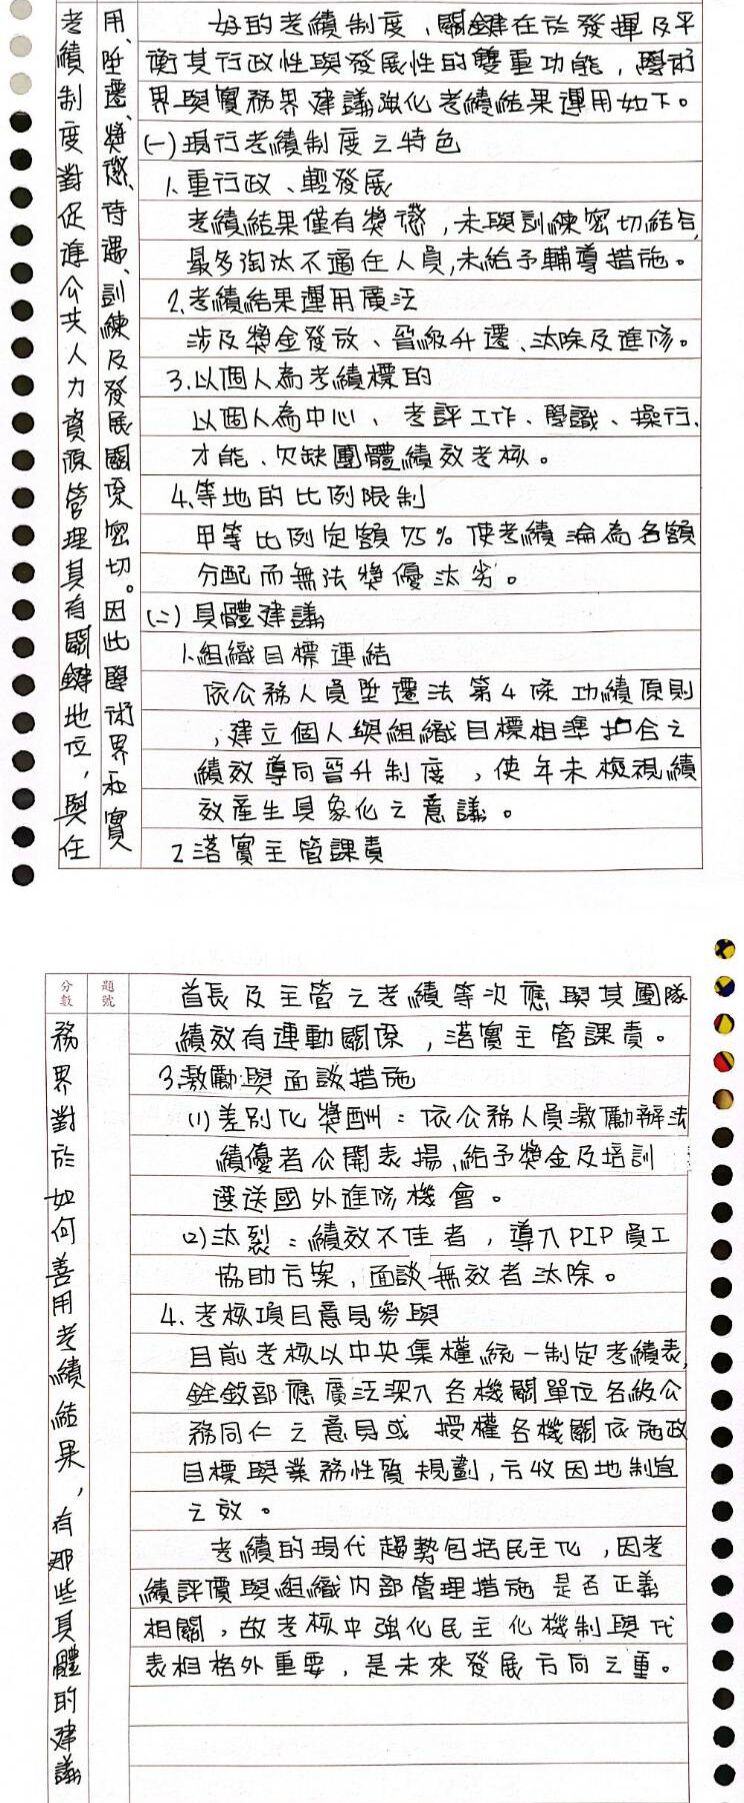 考績制度對促進公共人力資源管理具有關鍵地位，與任
用、陞遷、獎懲、待遇、訓練及發展關係密切。因此學術界和實
好的考績制度，關鍵在於發揮及平
衡其行政性與發展性的雙重功能，學術
界與實務界建議強化考績結果運用如下。
(一)現行考績制度之特色
1.重行政、輕發展
考績結果僅有獎懲，未與訓練密切結合，
最多淘汰不適任人員，未給予輔導措施。
2.考績結果運用廣泛
涉及獎金發放、晉級升遷、汰除及進修。
3.以個人為考績標的
以個人為中心，考評工作、學識、操行、
才能、欠缺團體績效考核。
4.等地的比例限制
甲等比例定額75%使考績淪為名額
分配而無法獎優汰劣。
(二)具體建議
1.組織目標連結
依公務人員陞遷法第4條功績原則
，建立個人與組織目標相準扣合之
績效導向晉升制度，使年末檢視績
效產生具象化之意議。
2.落實主管課責
分數
題號
務界對於如何善用考績結果，有那些具體的建議
首長及主管之考績等次應與其團隊
績效有連動關係，落實主管課責。
3.激勵與面談措施
(1)差別化獎酬：依公務人員激勵辦法
績優者公開表揚，給予獎金及培訓
選送國外進修機會。
(2)汰裂：績效不佳者，導入PIP員工
協助方案，面談無效者汰除。
4.考核項目意見參與
目前考核以中央集權統一制定考績表，
銓敘部應廣泛深入各機關單位各級公
務同仁之意見或授權各機關依施政
目標與業務性質規劃，方收因地制宜
之效。
考績的現代趨勢包括民主化，因考
績評價與組織內部管理措施是否正義
相關，故考核中強化民主化機制與代
表相格外重要，是未來發展方向之重。